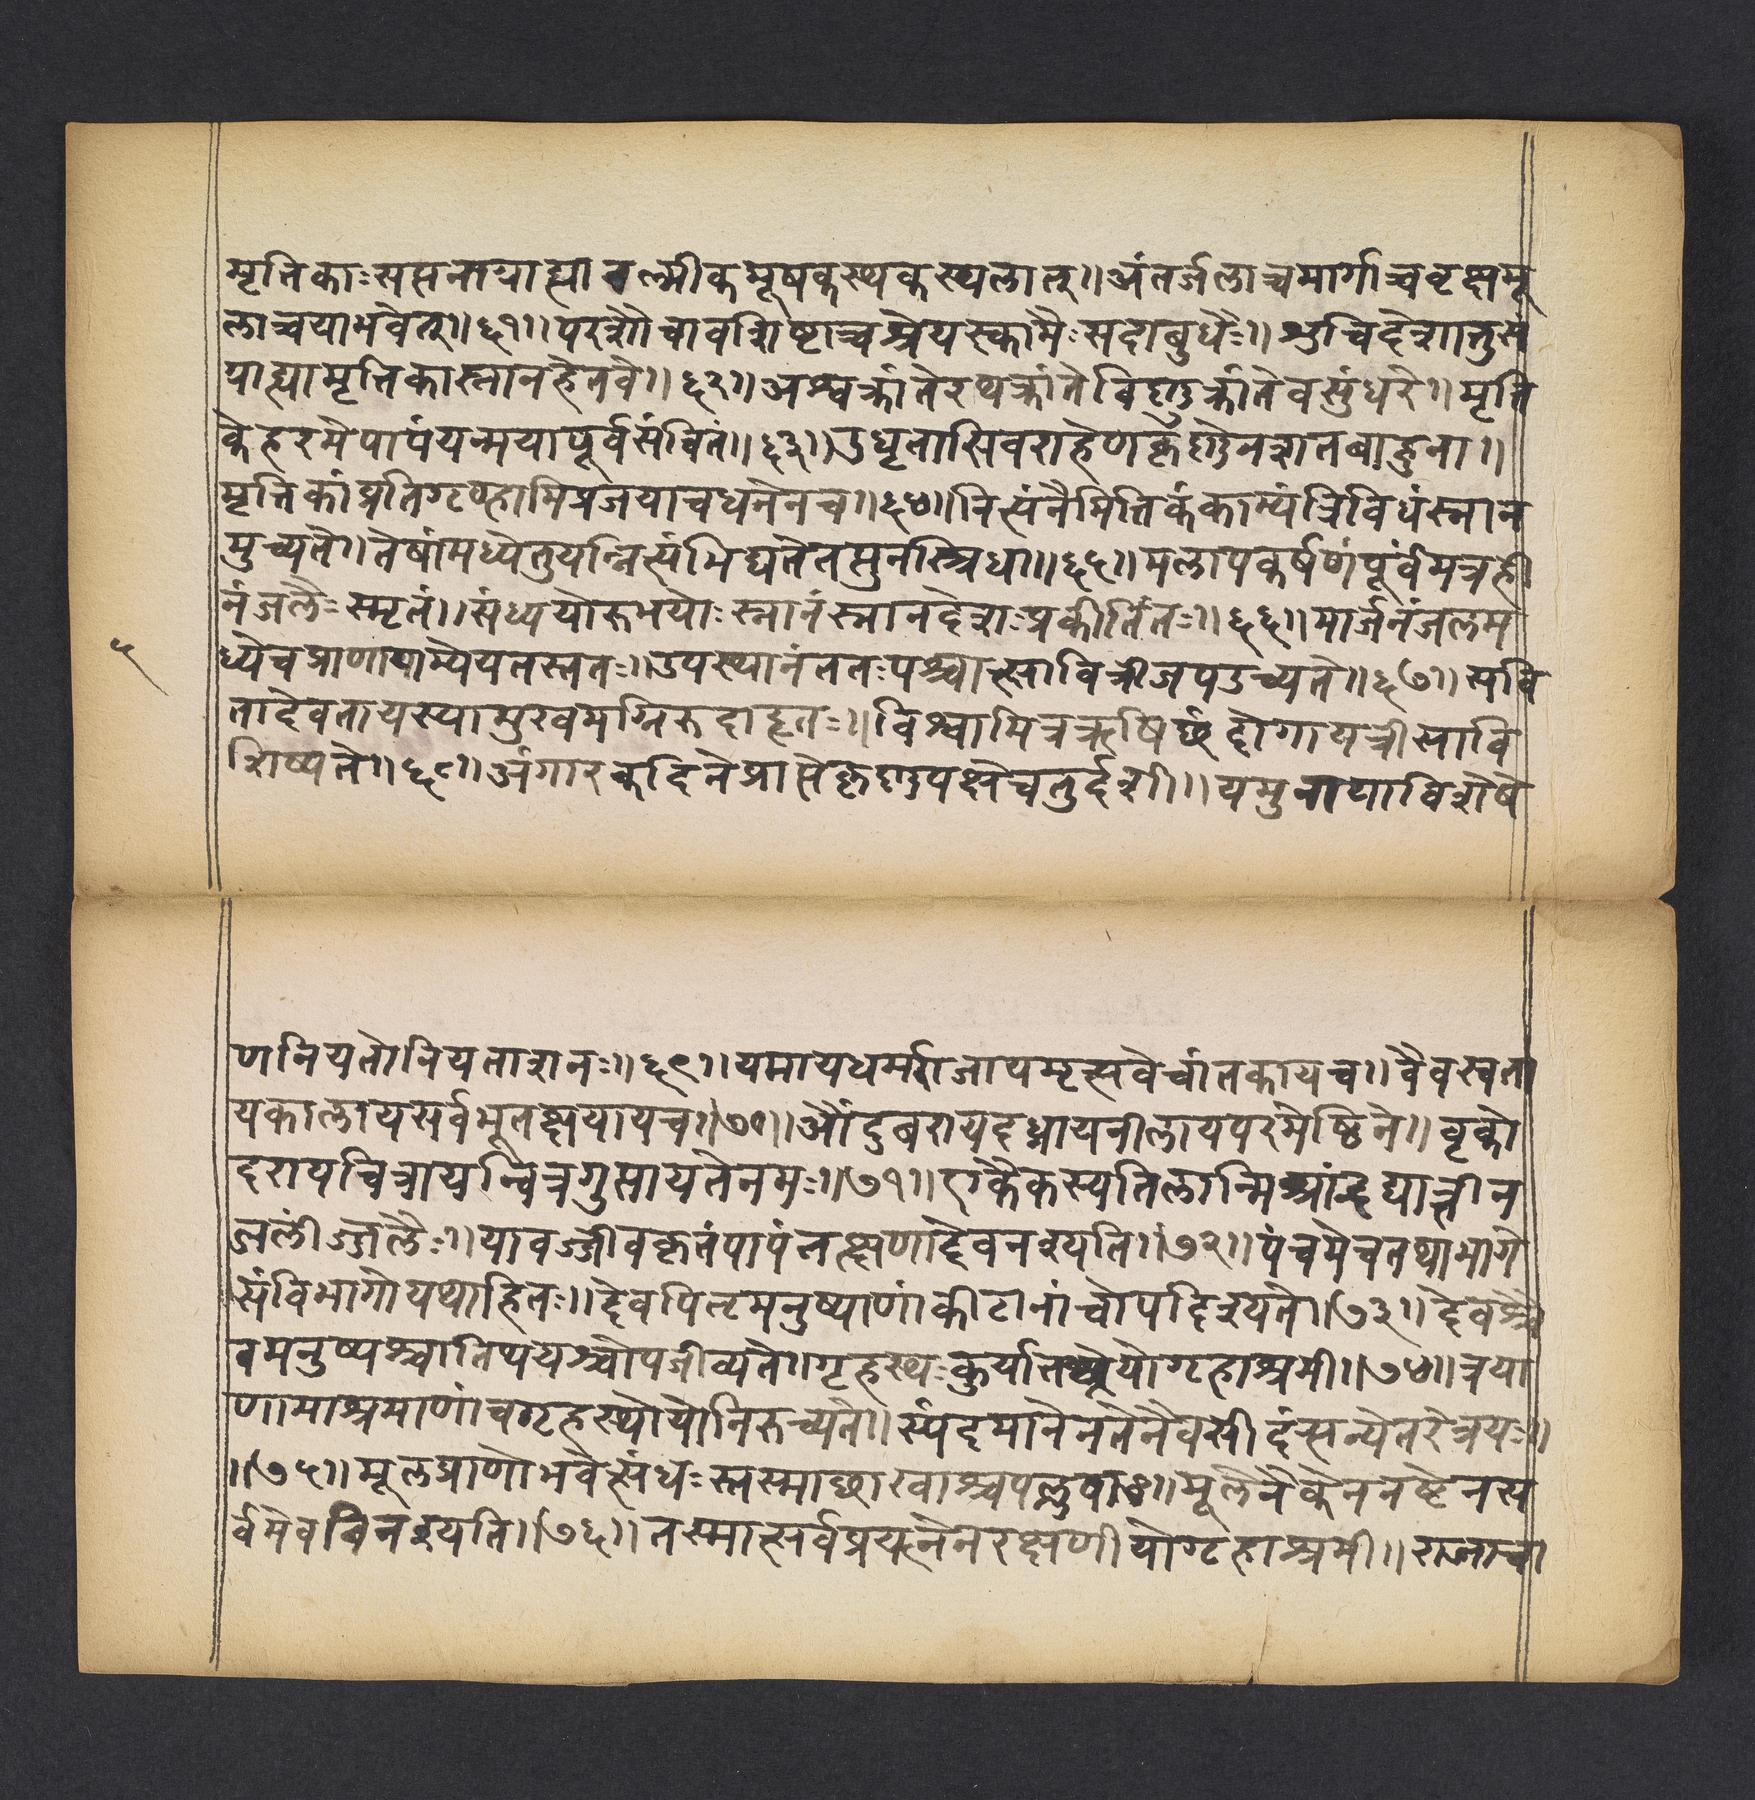 मृत्तिकाः सप्तनग्राह्या वल्मीकमूषकस्थकस्थलात् ॥ अंतर्जलाच्चमार्गाच्चवृक्षमू
लाच्चयाभवेत् ॥ ६१ ॥ परशौचावशिष्टाच्चश्रेयस्कामैः सदाबुधैः ॥ शुचिदेशात्तुसं
ग्राह्यामृत्तिकास्नानहेतवे ॥ ६२ ॥ अश्वक्रांतेरथक्रांतेविष्णुक्रांतेवसुंधरे ॥ मृत्ति
केहरमेपापंयन्मयापूर्वसंचितं ॥ ६३ ॥ उधृतासिवराहेणकृष्णेनशतबाहुना ॥
मृत्तिकांप्रतिगृण्हामिप्रजयाचधनेनच ॥ ६४ ॥ नित्यंनैमित्तिकंकाम्यंत्रिविधंस्नान
मुच्यते ॥ तेषांमध्येतुयन्नित्यंभिद्यतेतत्पुनस्त्रिधा ॥ ६५ ॥ मलापकर्षणंपूर्वंमंत्रही
नंजलैः स्मृतं ॥ संध्ययोरुभयोः स्नानंस्नानदेशः प्रकीर्तितः ॥ ६६ ॥ मार्जनंजलम
ध्येचप्राणायाम्येयतस्ततः ॥ उपस्थानंततः पश्चात्सावित्रीजपउच्यते ॥ ६७ ॥ सवि
तादेवतायस्यामुखमग्निरुदाहृतः ॥ विश्वामित्रऋषिर्छंदोगायत्रीसावि
शिष्यते ॥ ६८ ॥ अंगारकदिनेप्राप्तेकृष्णपक्षेचतुर्दशी ॥ यमुनायाविशेषे
५
णनियतोनियताशनः ॥ ६९ ॥ यमायधर्मराजायमृत्यवेचांतकायच ॥ वैवस्वता
यकालायसर्वभूतक्षयायच ॥ ७० ॥ औंदुबरायदध्नायनीलायपरमेष्ठिने ॥ वृको
दरायचित्रायचित्रगुप्तायतेनमः ॥ ७१ ॥ एकैकस्यतिलान्मिश्रांदद्यात्त्रीन
जलींजलैः ॥ यावज्जीवकृतंपापंतत्क्षणादेवनश्यति ॥ ७२ ॥ पंचमेचतथाभागे
संविभागोयथाहितः ॥ देवपितृमनुष्याणांकीटानांचोपदिश्यते ॥ ७३ ॥ देवश्चै
वमनुष्यश्चातिथयश्चोपजीव्यते ॥ गृहस्थः कुर्यात्तथ्येयोगृहाश्रमी ॥ ७४ ॥ त्रया
णामाश्रमाणांचगृहस्थोयोनिरुच्यते ॥ स्यंदमानेनतेनैवसीदंत्सन्येतरेत्रयः ॥
॥ ७५ ॥ मूलप्राणोभवेत्संधः स्तस्माछाखाश्चपल्लवाः ॥ मूलेनैकेननष्टेनस
र्वमेवविनश्यति ॥ ७६ ॥ तस्मात्सर्वप्रयत्नेनरक्षणीयोगृहाश्रमी ॥ राजाचा